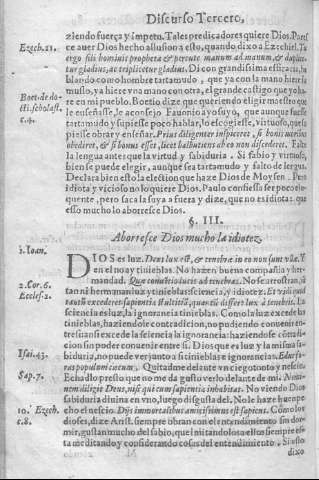 Discurso Tercero,
ziendo fuerça y impetu. Tales predicadores quiere Dios. Parece
Ezech. 21. ce auer Dios hecho allusion a esto, quando dixo a Ezechiel. Tu
ergo fili hominis propheta & percute manum ad manum, & duplicetur
tur gladius, ac triplicetur gladius. Di con grandissima efficacia, ha
blando como hombre tartamudo, que ya con la mano hiere la
muslo, ya hiere vna mano con otra, el grande castigo que yo ha
Boet. de do- re en mi pueblo. Boetio dize que queriendo eligir maestro que
cti. scholast. le enseñasse, le aconsejo Fauonio a yo suyo, que aunque fuesse
c. 4. tartamudo y supiesse poco hablar, lo escogiesse, virtuoso, que su
piesse obrar y enseñar. Prius diligenter inspiceret, si bonis moribus
obediret, & si bonus esset, licet balbutiens ab eo non discederet. Falta
la lengua antes que la virtud y sabiduria. Si sabio y virtuoso,
bien se puede elegir, aunque sea tartamudo y falto de lengua.
Declara bien esto la election que haze Dios de Moysen. Pero
idiota y vicioso no lo quiere Dios. Paulo confiessa ser poco elo
quente, pero saca la suya a fuera y dize, que no es idiota: que
esso mucho lo aborresce Dios.
§. III.
Aborresce Dios mucho la idiotez.
1. Ioan. DIOS es luz. Deus lux est, & tenebræ in eo non sunt vllæ. Y
en el no ay tinieblas. No hazen buena compañia y her-
2. Cor. 6. mandad. Quæ conuentio lucis ad tenebras. No se arrostran, si
Eccles. 2. tan ni hermanan luz y tinieblas: sciencia, y idiotez. Et vidi quod
tantùm excederet sapientia stultitiã, quantũ differt lux à tenebris. La
sciencia es luz, la ignorancia tinieblas. Como la luz excede las
tinieblas, haziendole contradicion, no pudiendo conuenir en-
tre si: ansi excede la sciencia la ignorancia: haziendo se contradi-
cion sin poder conuenir entre si. Dios que es luz y la misma sa-
Isai. 43. biduria, no puede ver junto a si tinieblas e ignorancias. Educ fo-
ras populum cæcum. Quitad me delante vn ciego tonto y necio
Sap. 7. Echad lo presto que no me da gusto verlo delante de mi. Nemi-
nem diligit Deus, nisi qui cum sapientia inhabitat. No viendo Dios
sabiduria diuina en vno, luego disgusta del. No le haze buen pe-
10. Ethicor. cho el necio. Dijs immortalibus amicissimus est sapiens. Como los
c. 8. dioses, dize Arist. siempre obran con el entendimiento sin dor-
mir, gustan mucho del sabio, que el imitandolos ellos siempre es-
ta meditando y considerando cosas del entendimiento. Si esto
dixo